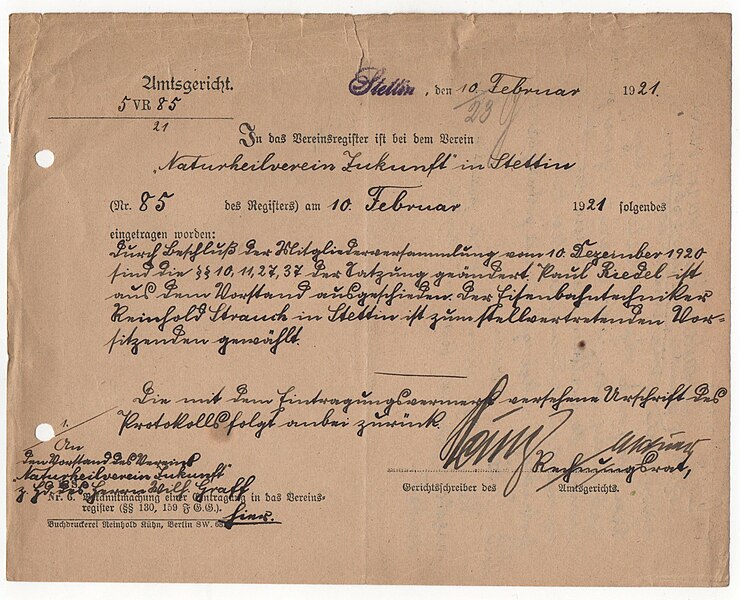 Amtsgericht.
5 VR 85
21
Stettin, den 10. Februar 1921.
23
In das Vereinsregister ist bei dem Verein
„Naturheilverein Zukunft" in Stettin
(Nr. 85 des Registers) am 10. Februar 1921 folgendes
eingetragen worden:
Durch Beschluß der Mitgliederversammlung vom 10. Dezember 1920
sind die §§ 10, 11, 27, 37 der Satzung geändert. Paul Riedel ist
aus dem Vorstand ausgeschieden. Der Eisenbahntechniker
Reinhold Strauch in Stettin ist zum stellvertretenden Vor-
sitzenden gewählt.
Die mit dem Eintragungsvermerk versehene Urschrift des
Protokolls folgt anbei zurück.
1.
An
den Vorstand des Vereins
„Naturheilverein Zukunft"
z. Hd. des Herrn Wilh. Graff
hier.
Rechnungsrat,
Gerichtschreiber des Amtsgerichts.
Nr. 6. Bekanntmachung einer Eintragung in das Vereins-
register (§§ 130, 159 F G.G.).
Buchdruckerei Reinhold Kühn, Berlin SW. 68